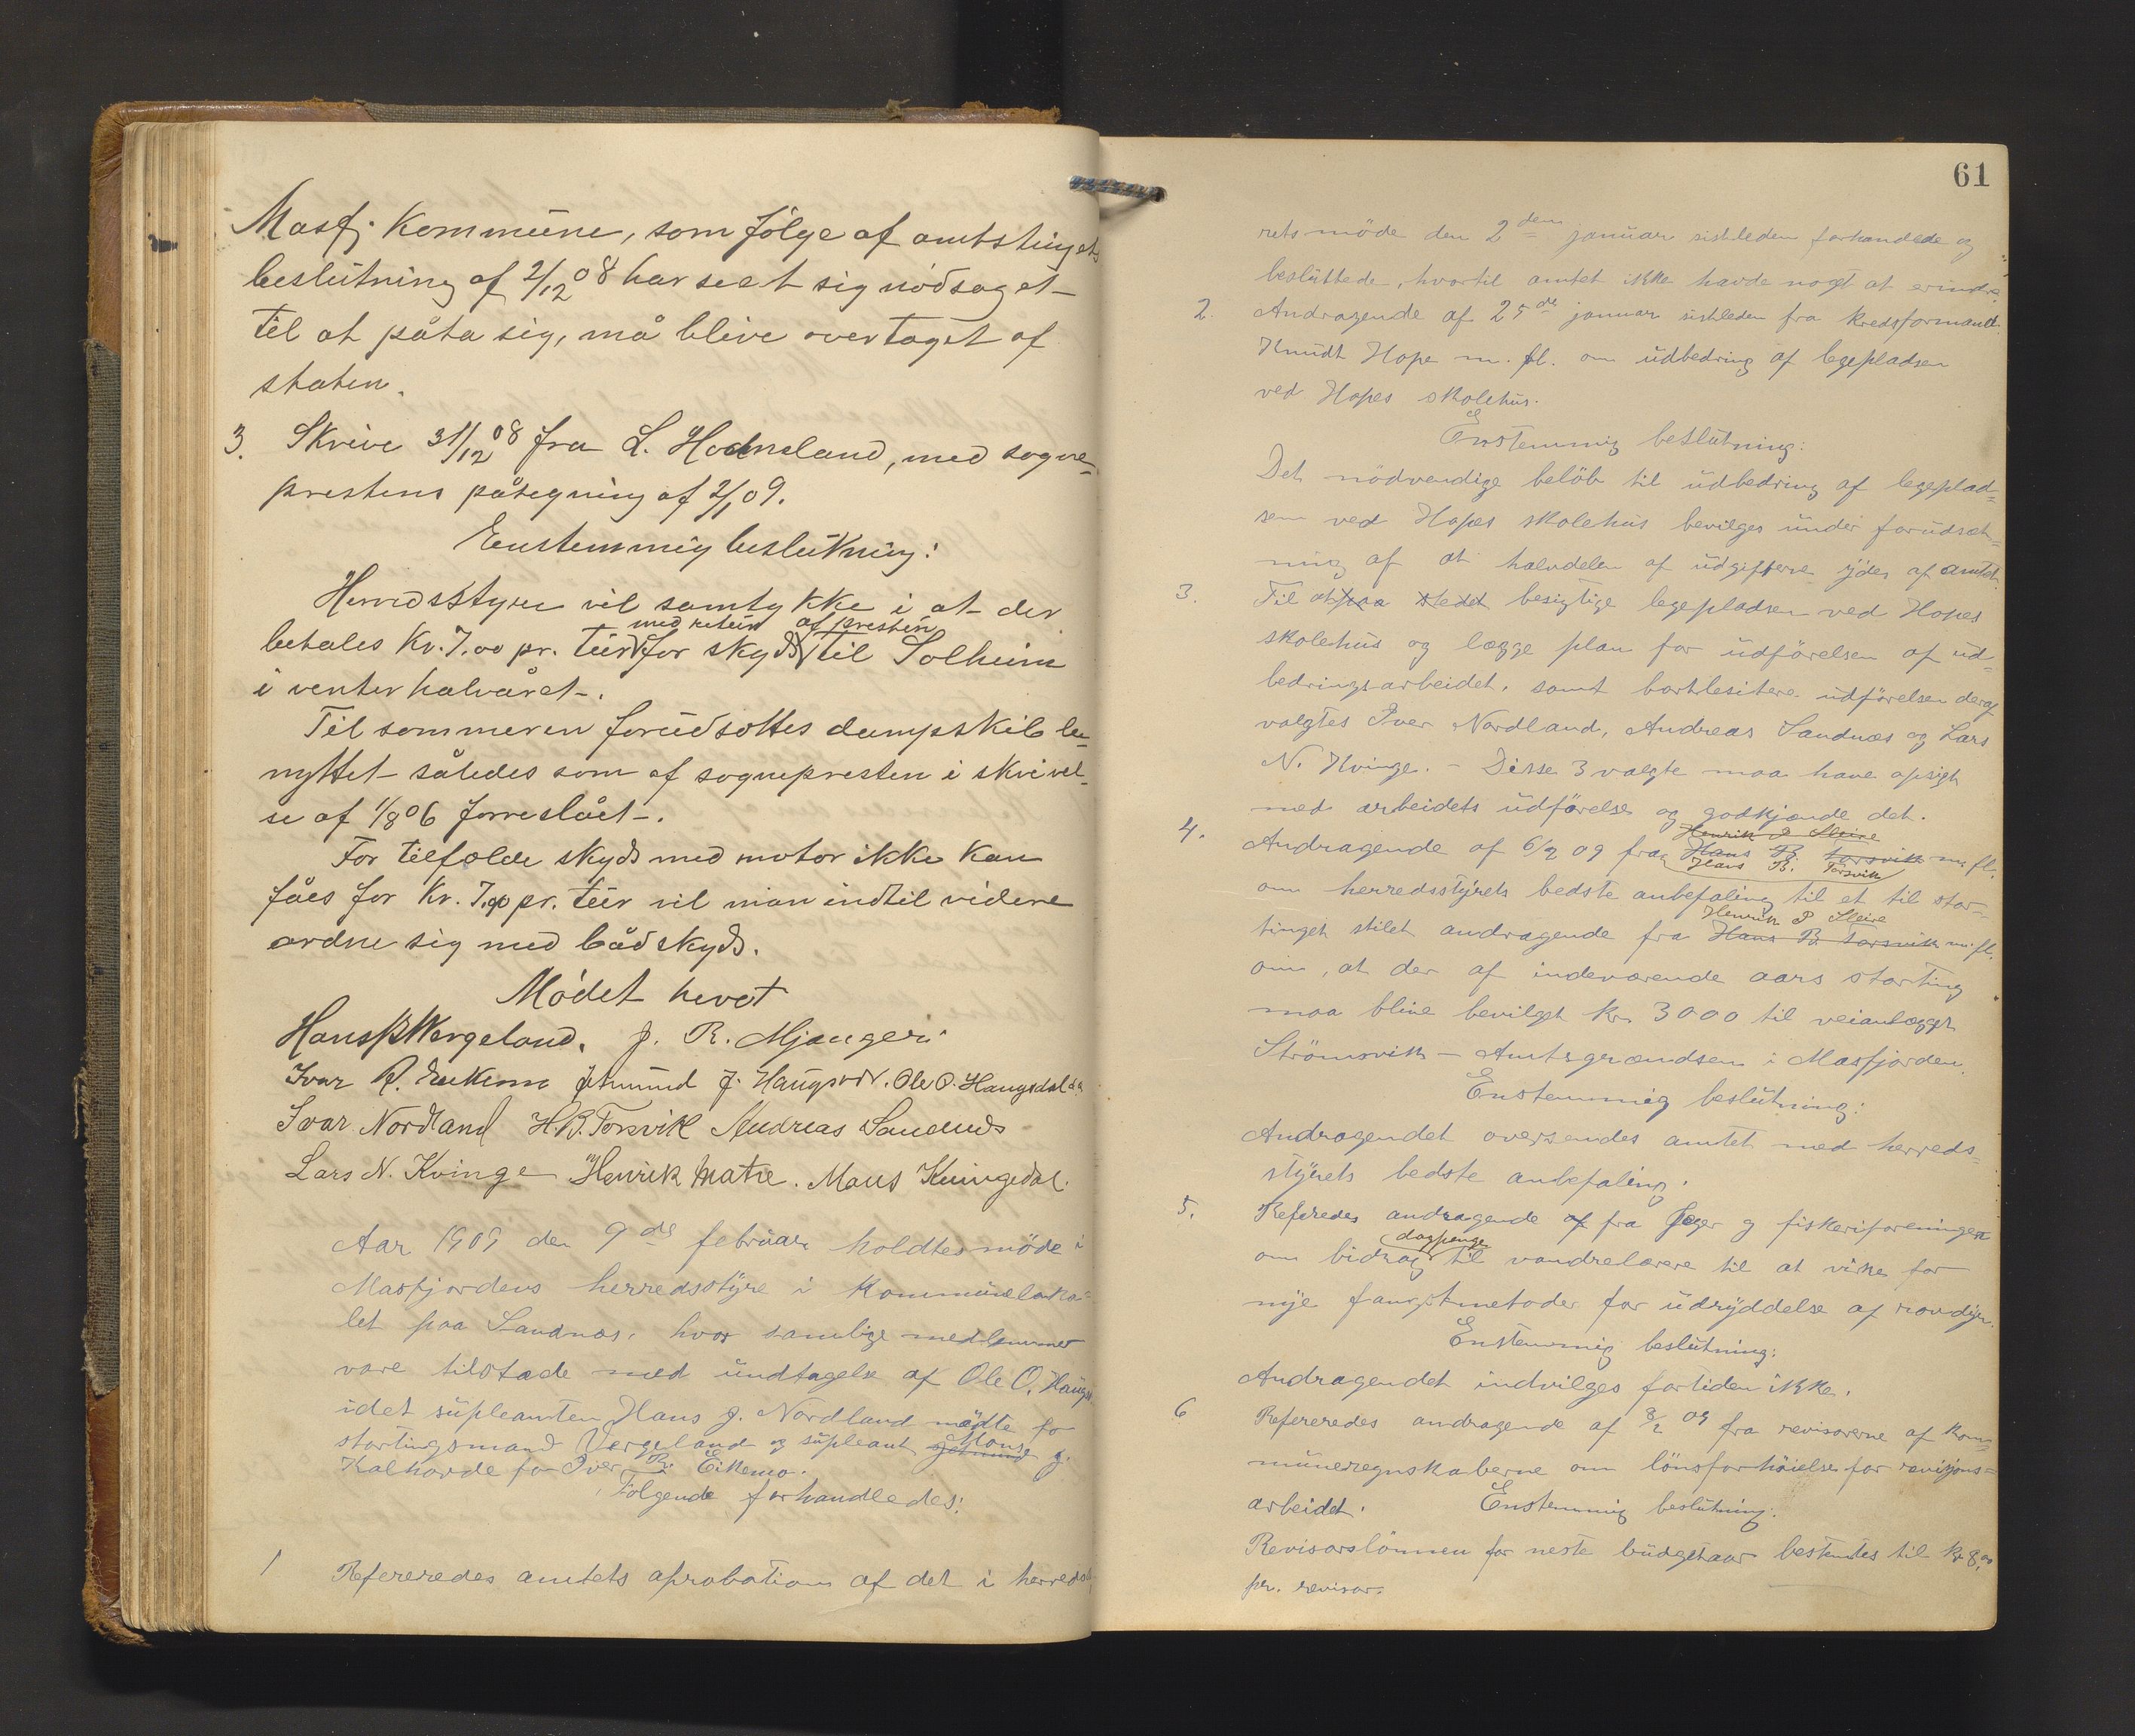 Masfj. kommune, som følge af amtstingets
beslutning af 2/12 08 har seet sig nödsaget
til at påta sig, må blive overtaget af
staten.
3. Skrive 31/12 08 fra L. Hodneland, med sogne-
prestens påtegning af 2/1 09.
Enstemmig beslutning:
Herredsstyret vil samtykke i at der
med retur af presten
betales Kr. 7.00 pr. tur for skyds til Solheim
i venterhalvåret.
Til sommeren forudsættes dampskib be-
nyttet således som af sognepresten i skrivel-
se af 1/8 06 forreslået.
For tilfælde skyds med motor ikke kan
fåes for Kr. 7.00 pr. tur vil man indtil videre
ordne sig med bådskyds.
Mødet hevet
Hans B Wergeland. J. R. Mjanger.
Ivar R. Eikemo Jetmund J. Haugsvær. Ole O. Haugsdal
Ivar Nordland H B. Torsvik Andreas Sandnes
Lars N. Kvinge Henrik Matre. Mons Kvingedal.
Aar 1909 den 9de februar holdtes möde i
Masfjordens herredsstyre i kommuneloka-
let paa Sandnæs, hvor samlige medlemmer
vare tilstæde med undtagelse af Ole O. Haugsd.
idet supleanten Hans J. Nordland mödte for
stortingsmand Vergeland og supleant Jetmund Mons J.
Kalhovde for Iver R. Eikemo.
Følgende forhandledes:
1 Refereredes amtets aprobation af det i herredsst
61
rets möde den 2den januar sistleden forhandlede og
besluttede, hvortil amtet ikke havde noget at erindre.
2. Andragende af 25de januar sistleden fra kredsformand
Knudt Hope m. fl. om udbedring af legepladsen
ved Hopes skolehus.
Enstemmig beslutning:
Det nödvendige belöb til udbedring af legeplad-
sen ved Hopes skolehus bevilges under forudsæt-
ning af at halvdelen af udgifterne ydes af amtet.
3. Til at paa stedet besigtige legepladsen ved Hopes
skolehus og lægge plan for udförelsen af ud-
bedringsarbeidet, samt bortlesitere udförelsen deraf
valgtes Iver Nordland, Andreas Sandnæs og Lars
N. Kvinge. - Disse 3 valgte maa have opsigt
med arbeidets udförelse og godkjænde det.
Henrik P Sleire
4. Andragende af 6/2 09 fra Hans B. Torsvik m. fl.
Hans B. Torsvik
om herredsstyrets bedste anbefaling til et til stor-
Henrik P Sleire
tinget stilet andragende fra Hans B. Torsvik m. fl.
om, at der af indeværende aars storting
maa blive bevilget kr 3000 til veianlægget
Strömsvik - Amtsgrændsen i Masfjorden.
Enstemmig beslutning:
Andragendet oversendes amtet med herreds-
styrets bedste anbefaling.
5. Referedes andragende af fra Jeger og fiskeriforeningen
dagpenge
om bidrag til vandrelærere til at virke for
nye fangstmetoder for udryddelse af rovdyr.
Enstemmig beslutning:
Andragendet indvilges fortiden ikke.
6 Refereredes andragende af 8/2 09 fra revisorerne af kom-
muneregnskaberne om lönsforhöielse for revisjons-
arbeidet. Enstemmig beslutning:
Revisorslönnen for neste budgetaar bestemtes til kr 8,00
pr. revisor.